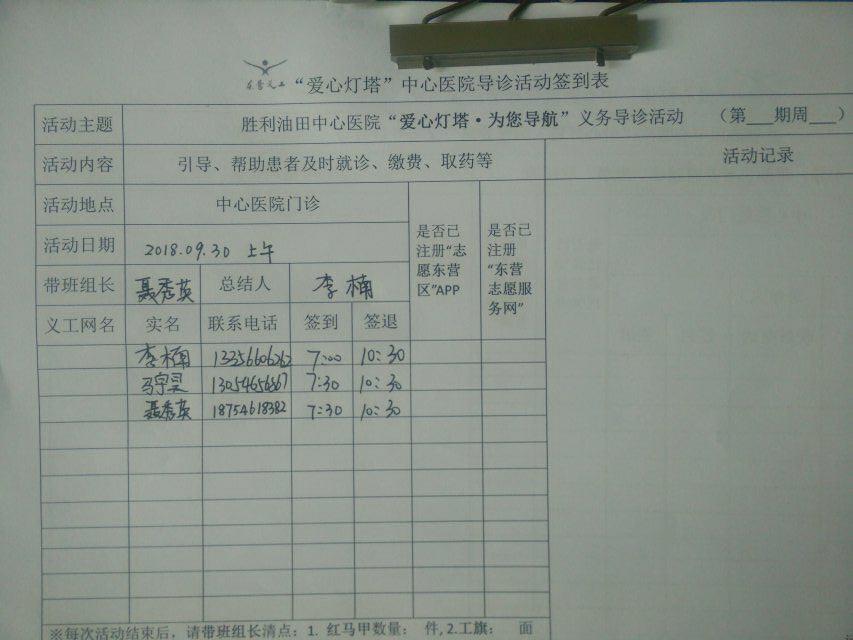 东营义工 “爱心灯塔”中心医院导诊活动签到表
活动主题 胜利油田中心医院“爱心灯塔·为您导航”义务导诊活动 （第___期周___）
活动内容 引导、帮助患者及时就诊、缴费、取药等 活动记录
活动地点 中心医院门诊
是否已注册“志愿东营区”APP
是否已注册“东营志愿服务网”
活动日期 2018.09.30 上午
带班组长 聂秀英 总结人 李楠
义工网名 实名 联系电话 签到 签退
李楠 13356606262 7:00 10:30
马宇昊 7:30 10:30
聂秀英 18754618382 7:30 10:30
※每次活动结束后，请带班组长清点：1. 红马甲数量： 件, 2.工旗： 面